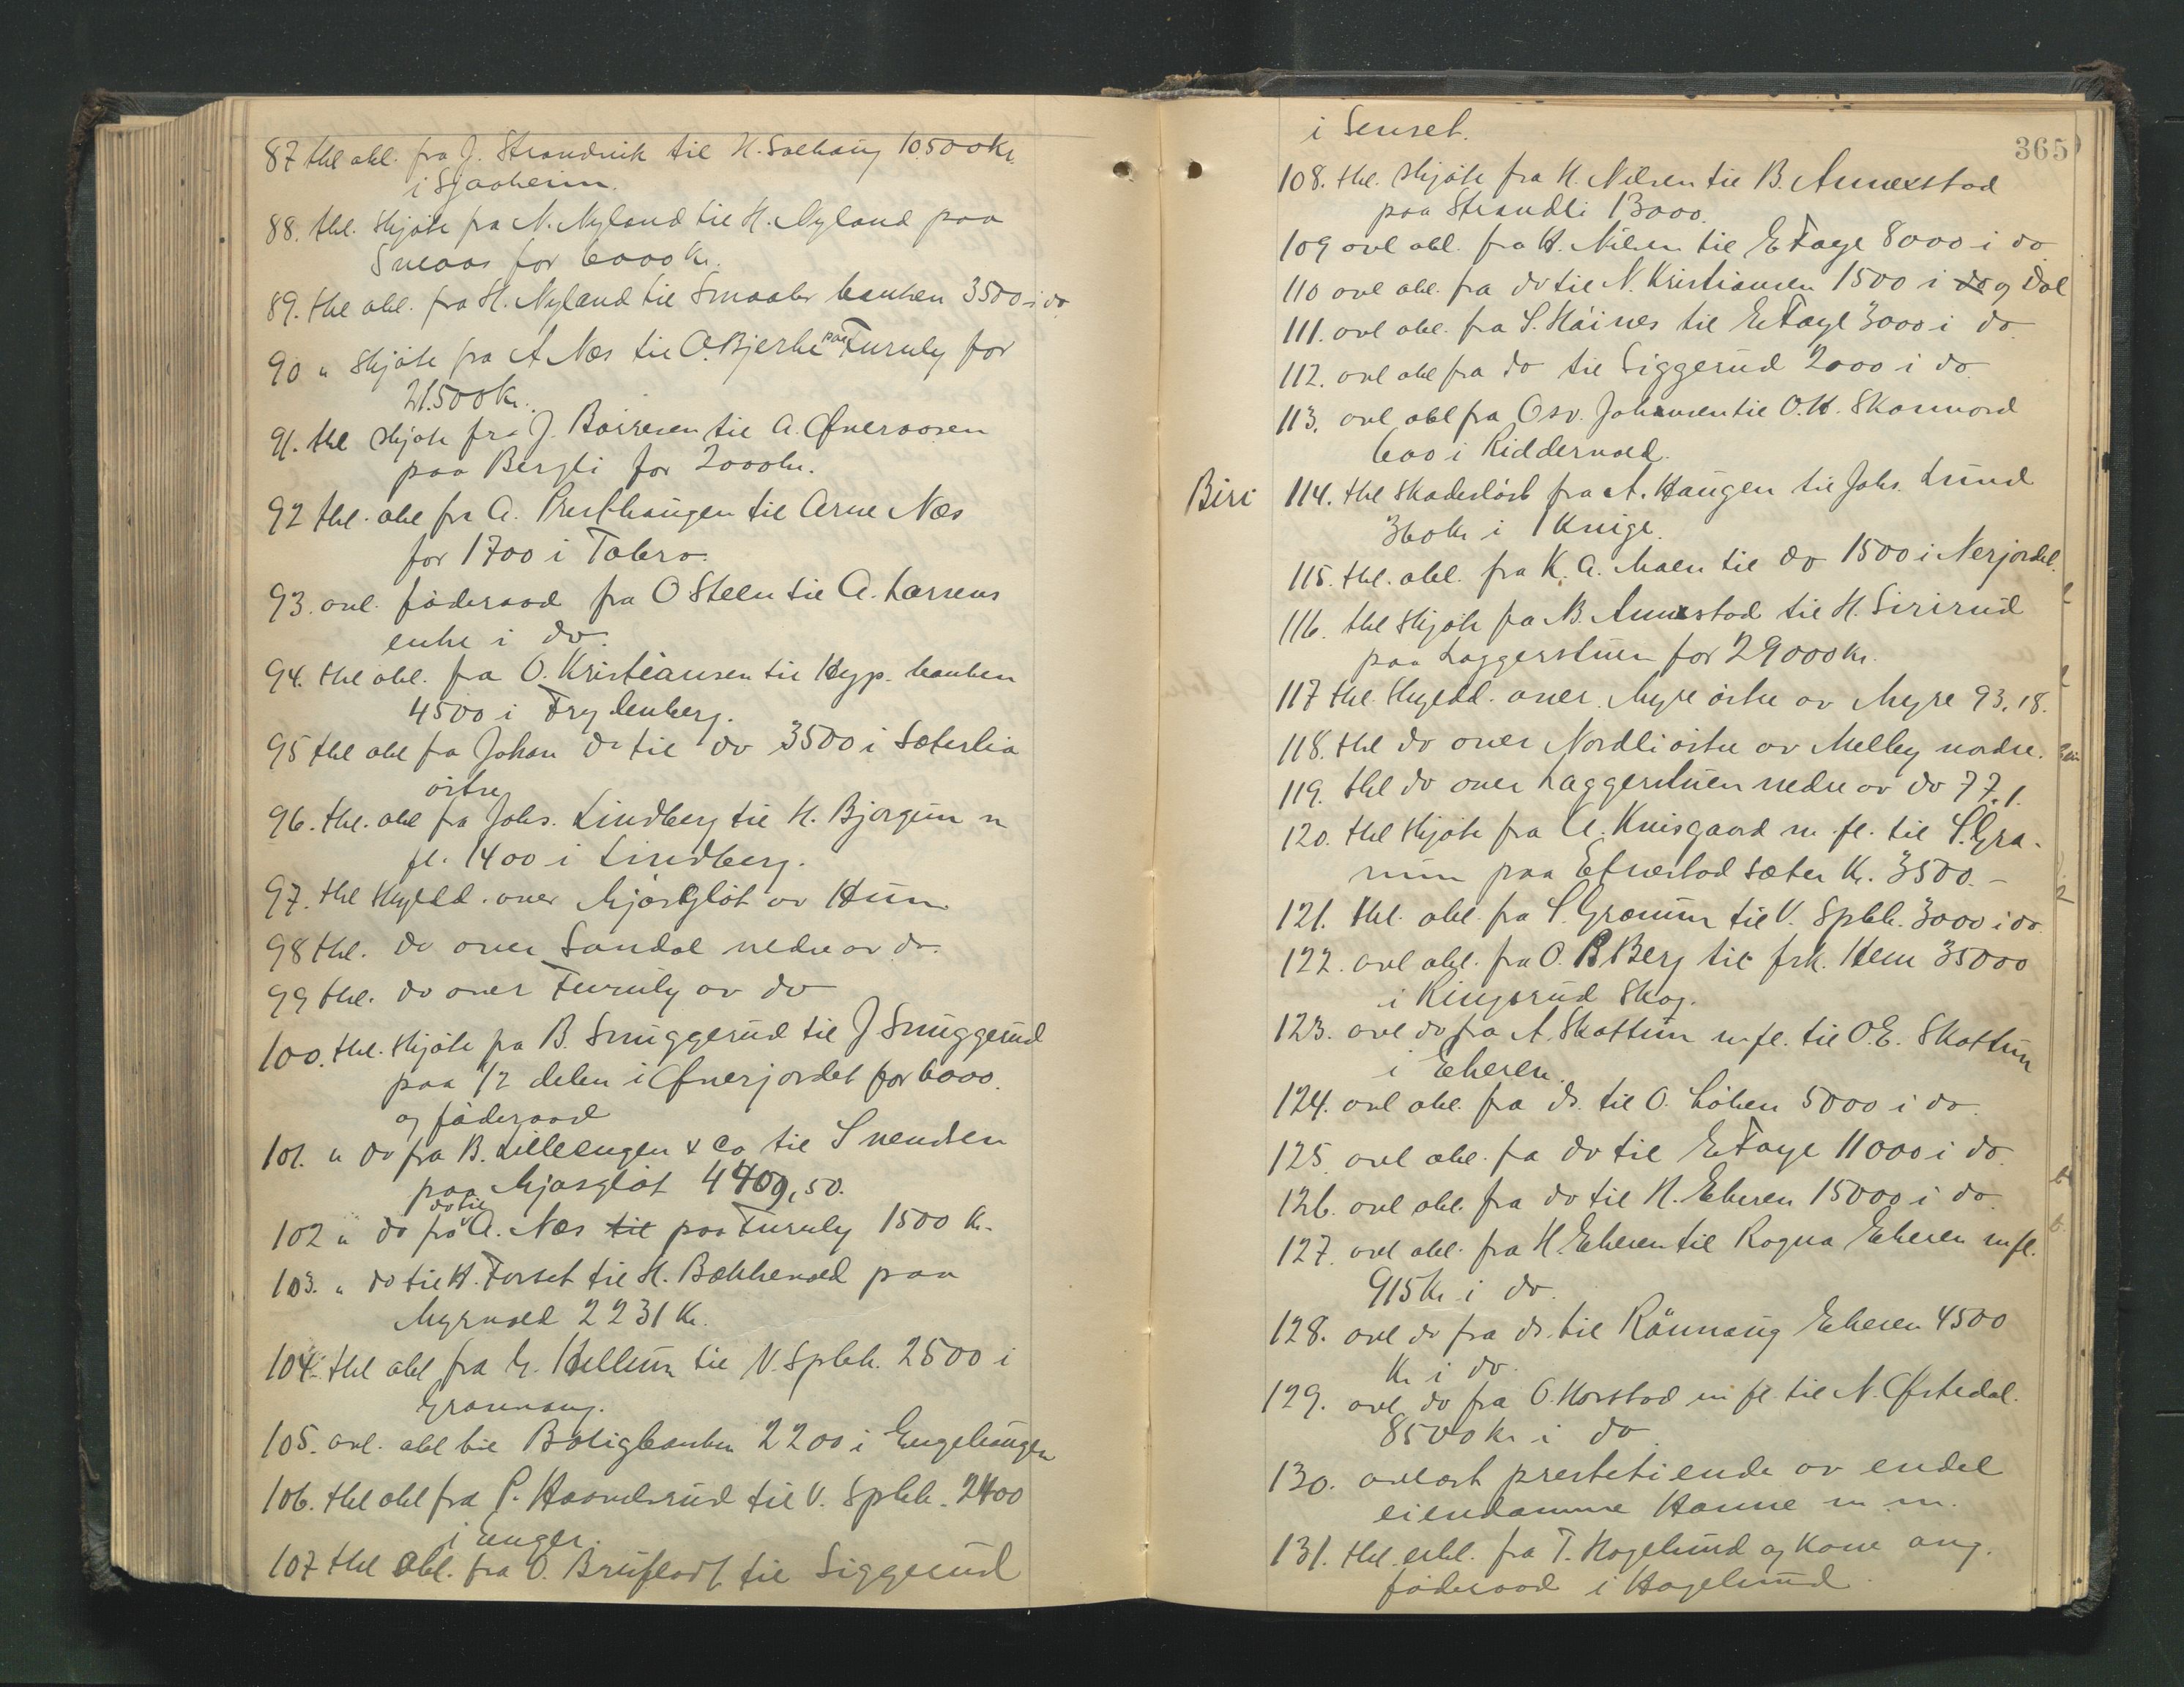 87 thl obl. fra J. Strandvik til H. Solhaug 10500 kr.
i Sjaaheim.
88. thl. skjøte fra N. Nyland til H. Nyland paa
Sveaas for 6000 kr.
89. thl obl. fra H. Nyland til Smaabr banken 3500 i do
90 " skjøte fra A Næs til O. Bjerke paa Furuly for
21.500 kr.
91. thl skjøte fra J. Børresen til A. Øveraasen
paa Bergli for 2000 kr.
92 thl. obl fra A. Presthaugen til Arne Næs
for 1700 i Tabero.
93. avl. føderaad fra O Steen til A. Larsens
enke i do.
94. thl obl. fra O. Kristiansen til Hyp. banken
4500 i Frydenberg.
95 thl obl fra Johan do til do 3500 i Sæterlia
østre
96. thl. obl fra Johs. Lindberg til H. Bjørgun m
fl. 1400 i Lindberg.
97. thl skyldd. over Mjøsgløt av Hun
98 thl. do over Sandal nedre av do.
99 thl. do over Furuly av do
100. thl. skjøte fra B. Smuggerud til J Smuggerud
paa 1/2 delen i Øverjordet for 6000.
og føderaad
101. " do fra B. Lilleengen & Co til Svendsen
paa Mjøsgløt 4409,50.
do til
102 " do fra A. Næs til paa Furuly 1500 kr.
103. " do til H. Forset til H. Bækkevold paa
Myrvold 2231 kr.
104. thl obl fra G. Hellum til V. Spbk. 2500 i
Granhaug.
105. avl. obl til Boligbanken 2200 i Engehaugen
106. thl obl fra P. Haandsrud til V. Spbk. 2400
i Enger.
107 thl obl. fra O. Bruflodt til Siggerud
365
i Senset.
108. thl. skjøte fra H. Nilsen til B. Annexstad
paa Strandli 13000.
109 avl obl. fra H. Nilsen til E Faye 8000 i do
110 avl obl. fra do til N. Kristiansen 1500 i do og Dal
111. avl obl. fra S. Haines til E Faye 3000 i do
112. avl obl fra do til Siggerud 2000 i do.
113. avl obl fra Osv. Johansen til O. H. Skonnord
600 i Riddervold.
Biri
114. thl skadesløst fra A. Haugen til Johs. Lund
360 kr i 1 Kvige.
115. thl. obl. fra K. A. Moen til do 1500 i Nerjordet.
116. thl skjøte fra B. Annexstad til H. Sirirud
paa Laggerstuen for 29000 kr.
117 thl. skyldd. over Myre østre av Myre 93,18.
118. thl do over Nordli østre av Melby nordre.
119. thl do over Laggerstuen nedre av do 77,1.
120. thl skjøte fra A. Krisgaard m. fl. til S. Gra-
num paa Efnestad sæter kr. 3500.-
121. thl. obl. fra S. Granum til V. Spbk. 3000 i do.
122. avl obl. fra O. B Berg til frk. Hem 35000
i Ringsrud Skog.
123. avl do fra A. Skattum m. fl. til O. E. Skattum
i Ekeren.
124. avl obl. fra do. til O. Løken 5000 i do.
125. avl obl. fra do til E Faye 11000 i do.
126. avl obl. fra do til H. Ekeren 15000 i do.
127. avl obl. fra H Ekeren til Ragna Ekeren m fl.
915 kr. i do.
128. avl do fra do. til Rönnaug Ekeren 4500
kr i do.
129. avl do fra O. Horstad m fl til N. Øistedal.
8500 kr i do.
130. avløst prestetiende av endel
eiendomme Honne m. m.
131. thl. erkl. fra T. Hagelund og Kone ang.
føderaad i Hagelund